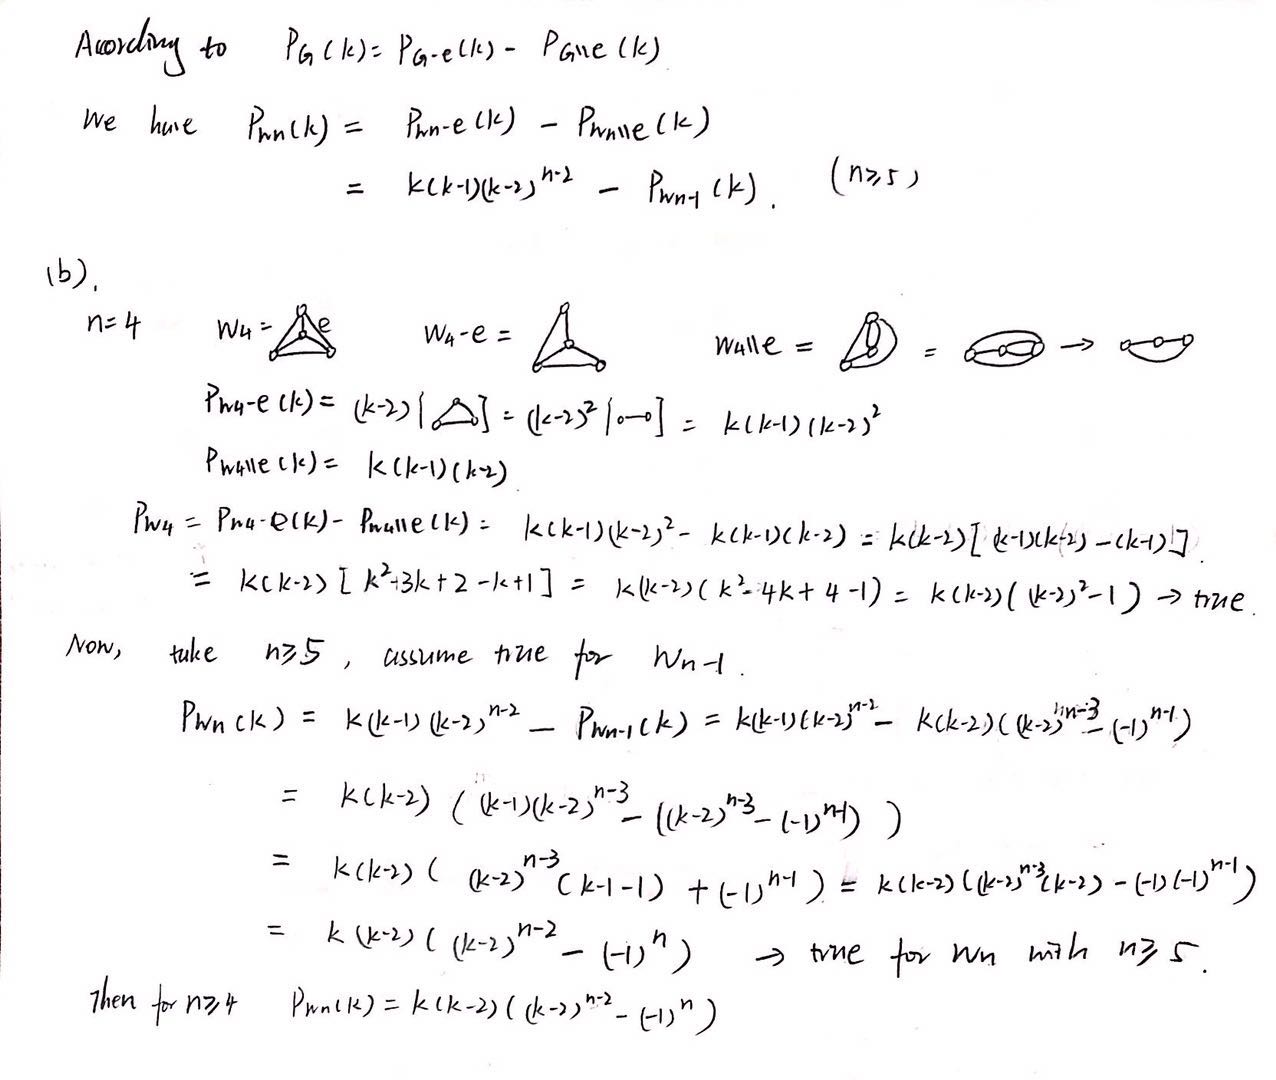 Acording to P_G(k) = P_{G-e}(k) - P_{G\\e}(k)
We have P_{Wn}(k) = P_{Wn-e}(k) - P_{Wn\\e}(k)
= k(k-1)(k-2)^{n-2} - P_{Wn-1}(k). (n≥5)
(b).
n=4 W4 = e W4-e = W4\\e = = →
P_{W4-e}(k) = (k-2)[ ] = (k-2)^2[ ] = k(k-1)(k-2)^2
P_{W4\\e}(k) = k(k-1)(k-2)
P_{W4} = P_{W4-e}(k) - P_{W4\\e}(k) = k(k-1)(k-2)^2 - k(k-1)(k-2) = k(k-2)[(k-1)(k-2)-(k-1)]
= k(k-2)[k^2-3k+2-k+1] = k(k-2)(k^2-4k+4-1) = k(k-2)((k-2)^2-1) → true.
Now, take n≥5, assume true for Wn-1.
P_{Wn}(k) = k(k-1)(k-2)^{n-2} - P_{Wn-1}(k) = k(k-1)(k-2)^{n-2} - k(k-2)((k-2)^{n-3} - (-1)^{n-1})
= k(k-2)((k-1)(k-2)^{n-3} - ((k-2)^{n-3} - (-1)^{n-1}))
= k(k-2)((k-2)^{n-3}(k-1-1) + (-1)^{n-1}) = k(k-2)((k-2)^{n-3}(k-2) - (-1)(-1)^{n-1})
= k(k-2)((k-2)^{n-2} - (-1)^n) → true for Wn with n≥5.
Then for n≥4 P_{Wn}(k) = k(k-2)((k-2)^{n-2} - (-1)^n)